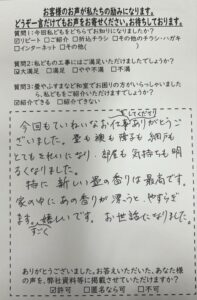 お客様のお声が私たちの励みになります。
どうぞ一言だけでもお声をお寄せください。お待ちしております。
質問1:今回私どもをどちらでお知りになりましたか?
☑リピート □ご紹介 □折込チラシ □その他のチラシ・ハガキ
□インターネット □その他( )
質問2:私どもの工事にはご満足いただけましたでしょうか?
☑大満足 □満足 □やや不満 □不満
質問3:畳やふすまなど和室でお困りの方がいらっしゃいましたら、私どもをご紹介いただけますでしょうか?
☑紹介できる □紹介できない
今回もていねいなお仕事してくださりありがとうございました。畳も襖も障子も網戸も
とてもきれいになり、部屋も気持ちも明るくなりました。
特に新しい畳の香りは最高です。
家の中にあの香りが漂うと、やすらぎます。すごく嬉しいです。お世話になりました。
ありがとうございました。お答えいただいた、あなた様
の声を、弊社資料等に掲載させていただけますか?
☑許可 □匿名なら可 □不可